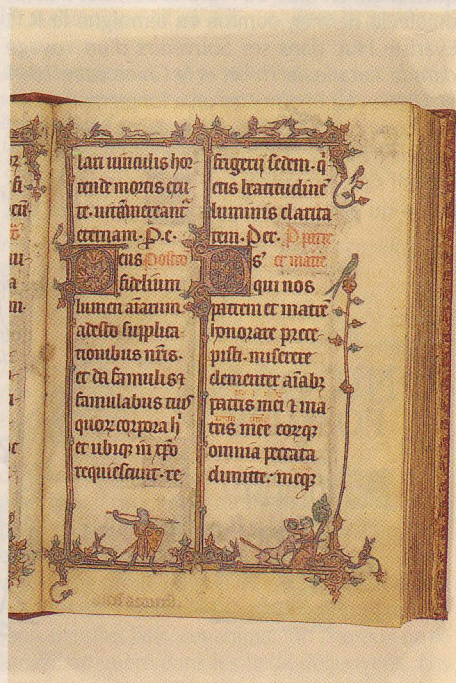 lari vinculis hor
rende mortis exu
te. vitā mereant̄
eternam. P. e.
Deus P ostro
fidelium
lumen aīarum
adesto supplica
tionibus nr̄is.
et da famulis ⁊
famulabus tuis
quor corpora h̓
et ubiq; in xp̄o
requiescunt. re
frigerij sedem. q̓
etis beatitudinē
luminis clarita
tem. Per. P patre
Ds̓ et matre
qui nos
patrem et matrē
honorare prece
pisti. miserere
clementer aīab;
patris mei ⁊ ma
tris mee eorq;
omnia peccata
dimitte. meq;